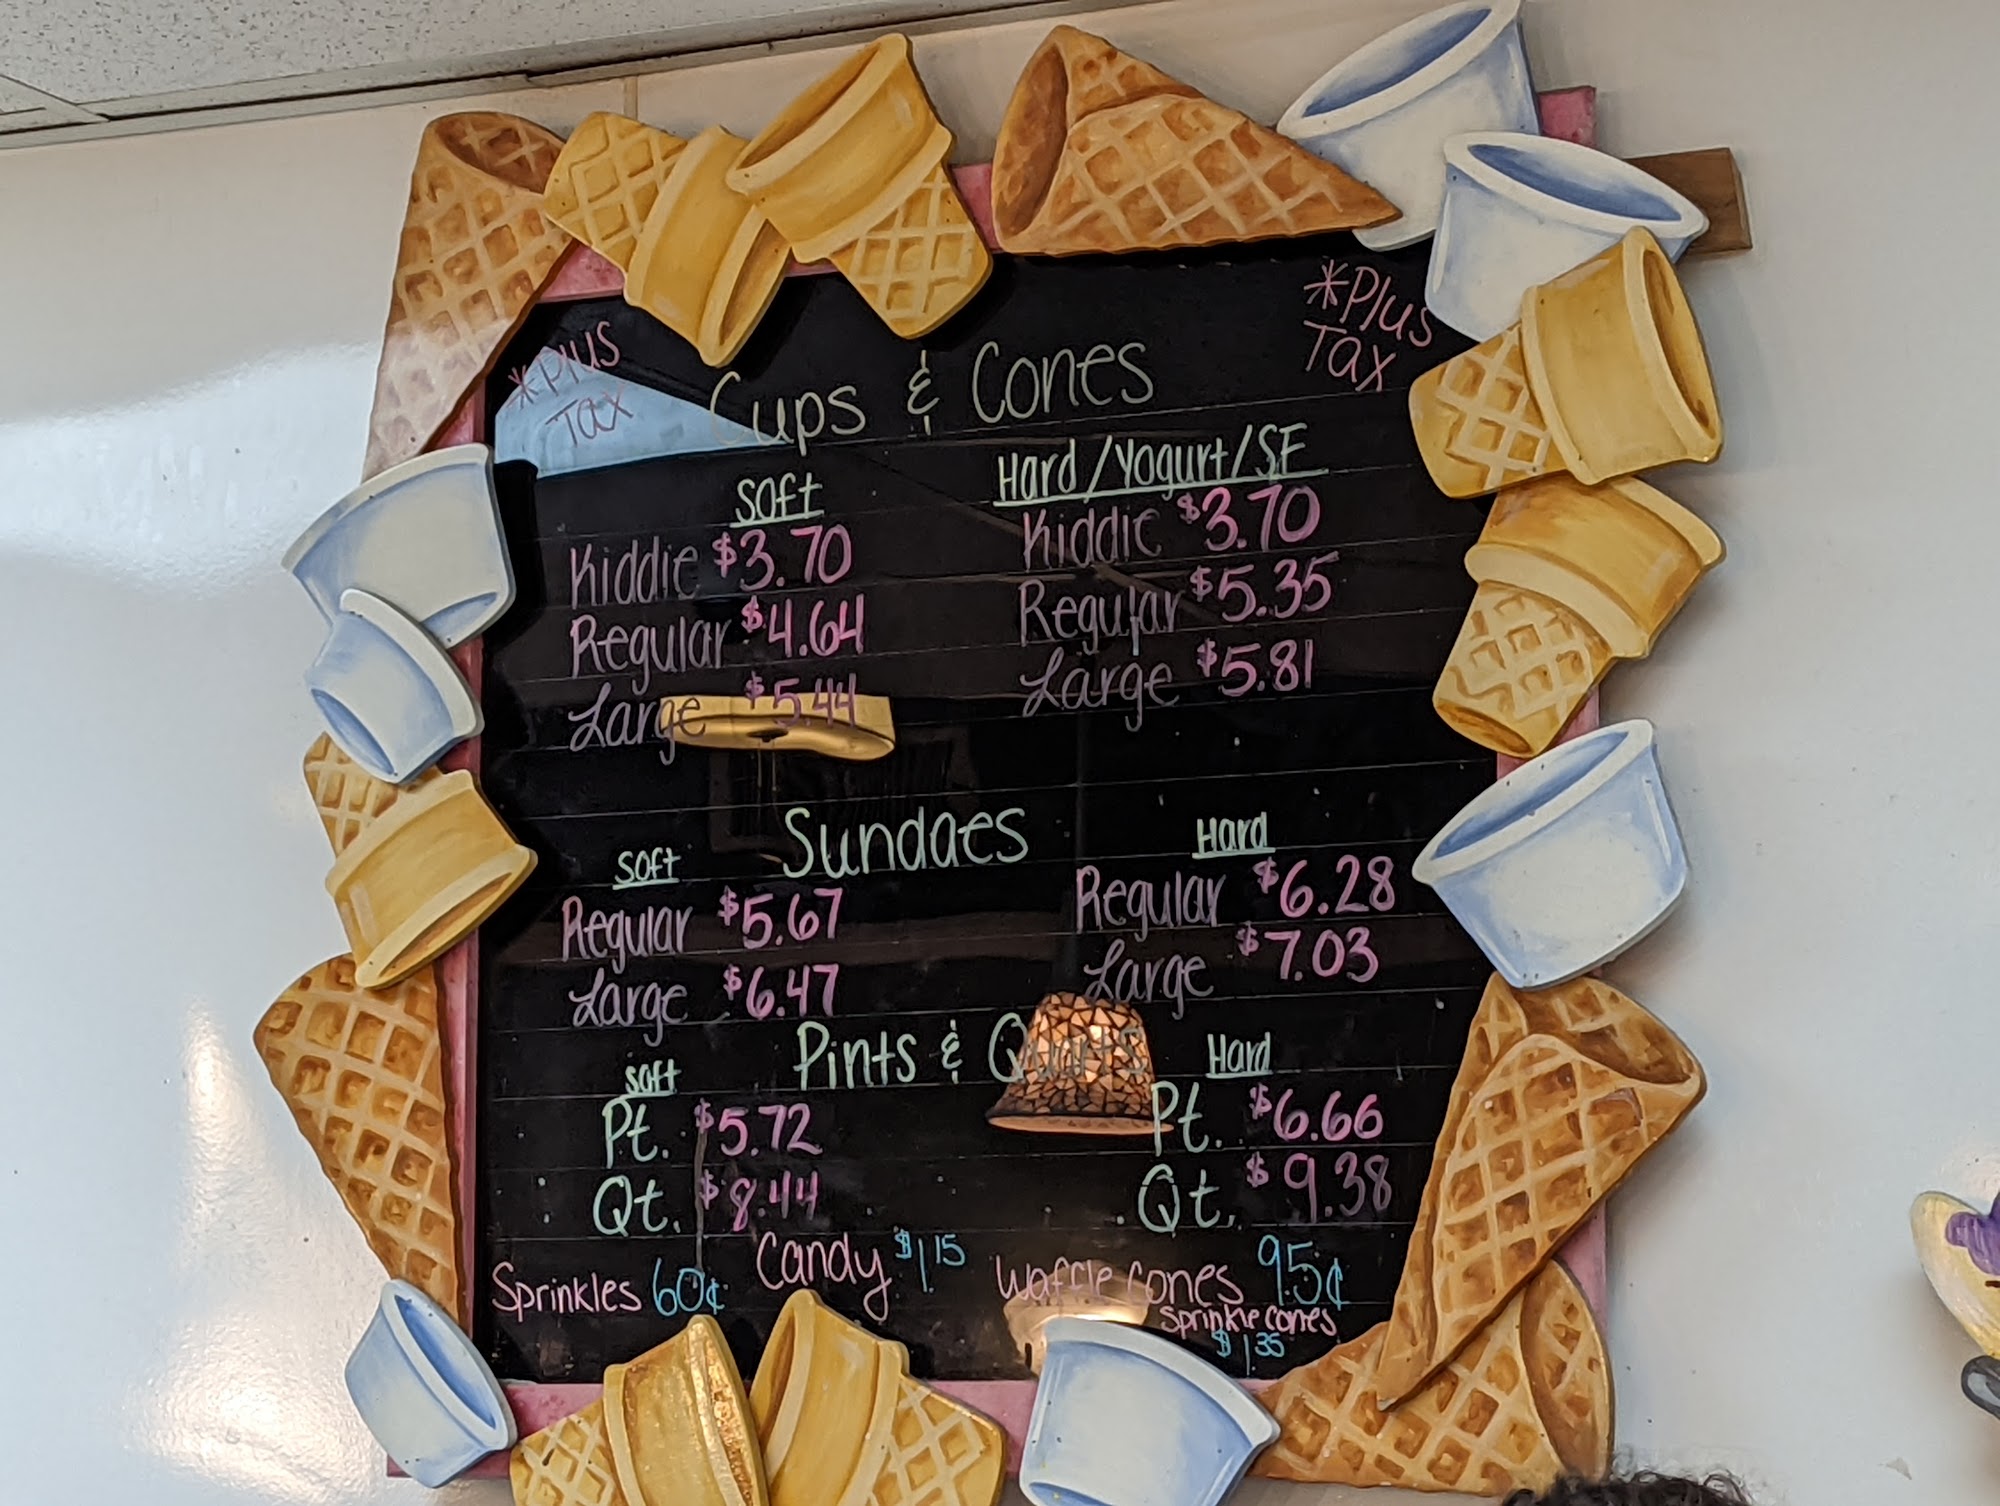 *Plus
Tax
*Plus
Tax
Cups & Cones
Soft
Kiddie $3.70
Regular $4.64
Large $5.44
Hard/Yogurt/SF
Kiddie $3.70
Regular $5.35
Large $5.81
Sundaes
Soft
Regular $5.67
Large $6.47
Hard
Regular $6.28
Large $7.03
Pints & Quarts
Soft
Pt. $5.72
Qt. $8.44
Hard
Pt. $6.66
Qt. $9.38
Sprinkles 60¢
Candy $1.15
Waffle cones 95¢
Sprinkle cones
$1.35